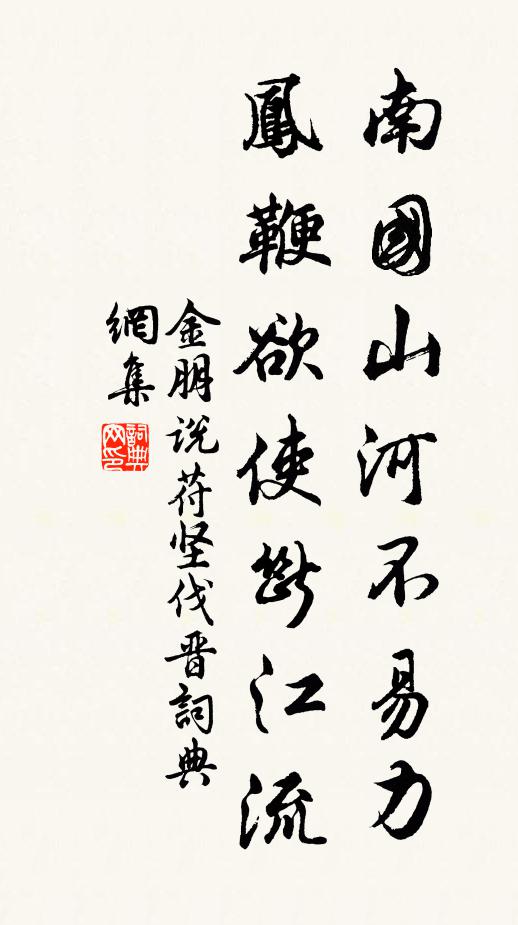 南國山河不易力
鳳鞭欲使斷江流
金朋说苻坚伐晋詞典
網集
詞典
网印